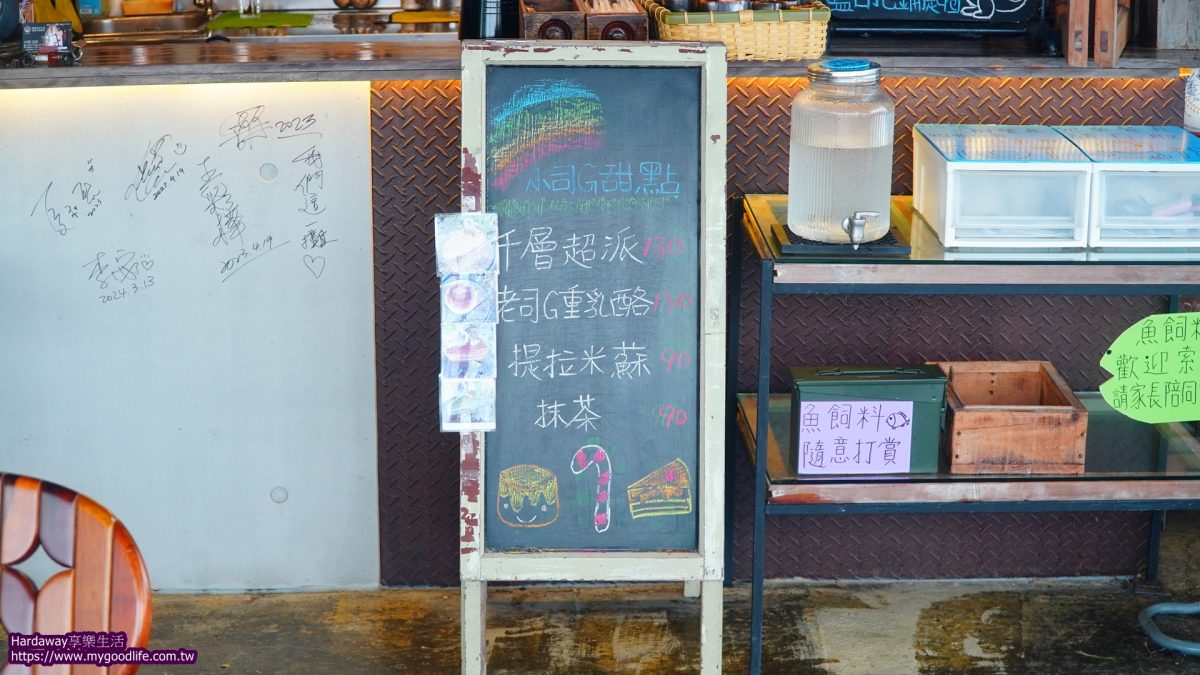 2023
我們這一攤
2023.4.19
2024.3.13
小司G甜點
千層超派 130
老司G重乳酪 130
提拉米蘇 90
抹茶 90
魚飼料
隨意打賞
魚飼料
歡迎索
請家長陪同
Hardaway享樂生活
https://www.mygoodlife.com.tw